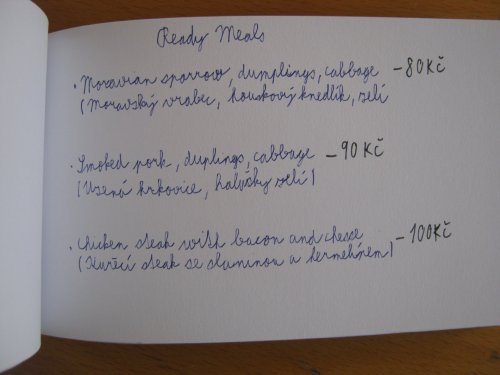 Ready Meals
· Moravian sparrow, dumplings, cabbage - 80Kč
(Moravský vrabec, houskový knedlík, zelí
· Smoked pork, duplings, cabbage - 90 Kč
(Uzená krkovice, halušky zelí)
· Chicken steak with bacon and chesse - 100Kč
(Kuřecí steak se slaninou a hermelínem)